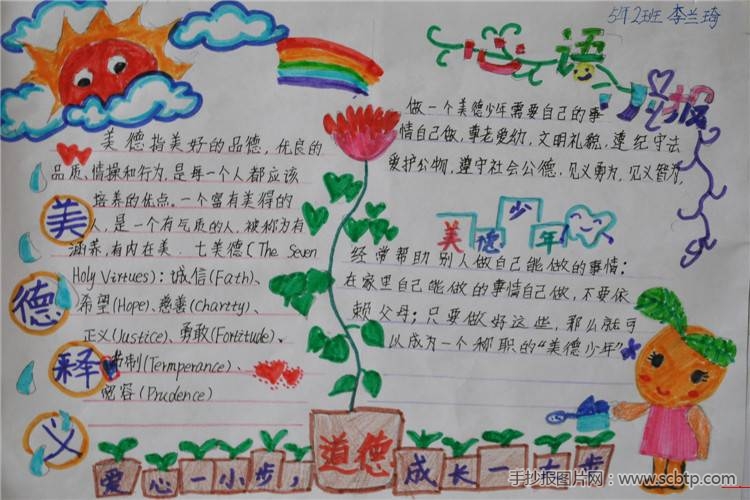 5年2班 李兰琦
心语小报
美德指美好的品德,优良的
品质、情操和行为,是每一个人都应该
培养的优点。一个富有美得的
人,是一个有气质的人,被称为有
涵养,有内在美.七美德(The Seven
Holy Virtues):诚信(Fath)、
希望(Hope)、慈善(Chartty)、
正义(Justice)、勇敢(Fortitude)、
节制(Termperance)、
宽容(Prudence)
美德释义
做一个美德少年需要自己的事
情自己做,尊老爱幼,文明礼貌,遵纪守法
爱护公物,遵守社会公德,见义勇为,见义智为,
美德少年
经常帮助别人做自己能做的事情;
在家里自己能做的事情自己做,不要依
赖父母;只要做好这些,那么就可
以成为一个称职的“美德少年”
道德
爱心一小步,成长一大步
手抄报图片网:www.scbtp.com